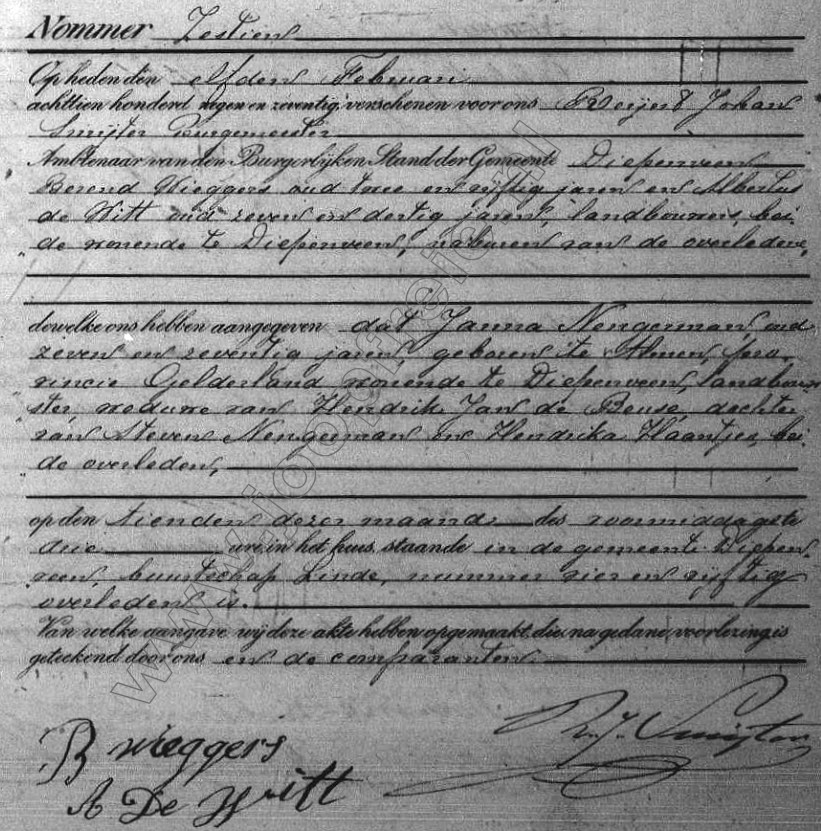 Nommer Zestien
Op heden den elfden Februari
achttien honderd negen en zeventig, verschenen voor ons Weijert Johan
Smijter Burgemeester
Ambtenaar van den Burgerlijken Stand der Gemeente Diepenveen
Berend Wieggers oud twee en vijftig jaren en Albertus
de Witt oud zeven en dertig jaren, landbouwers, bei-
de wonende te Diepenveen, naburen van de overledene,
dewelke ons hebben aangegeven dat Janna Nengerman, oud
zeven en zeventig jaren geboren te Almen, pro-
vincie Gelderland wonende te Diepenveen, landbouw-
ster, weduwe van Hendrik Jan de Beuse, dochter
van Steven Nengerman en Hendrika Haantjes, bei-
de overleden,
op den tienden dezer maand des voormiddags te
drie ure, in het huis, staande in de gemeente Diepen-
veen, buurtschap Linde, nummer vier en vijftig
overleden is.
Van welke aangave wij deze akte hebben opgemaakt, die, na gedane voorlezing, is
geteekend door ons en de comparanten.
B wieggers
A De Writt